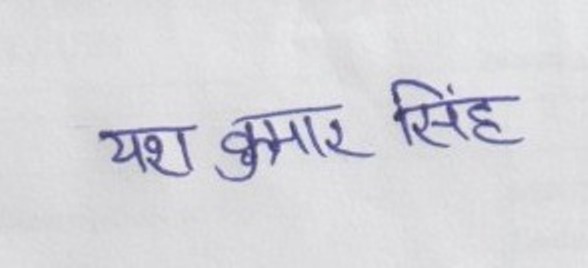 यश कुमार सिंह